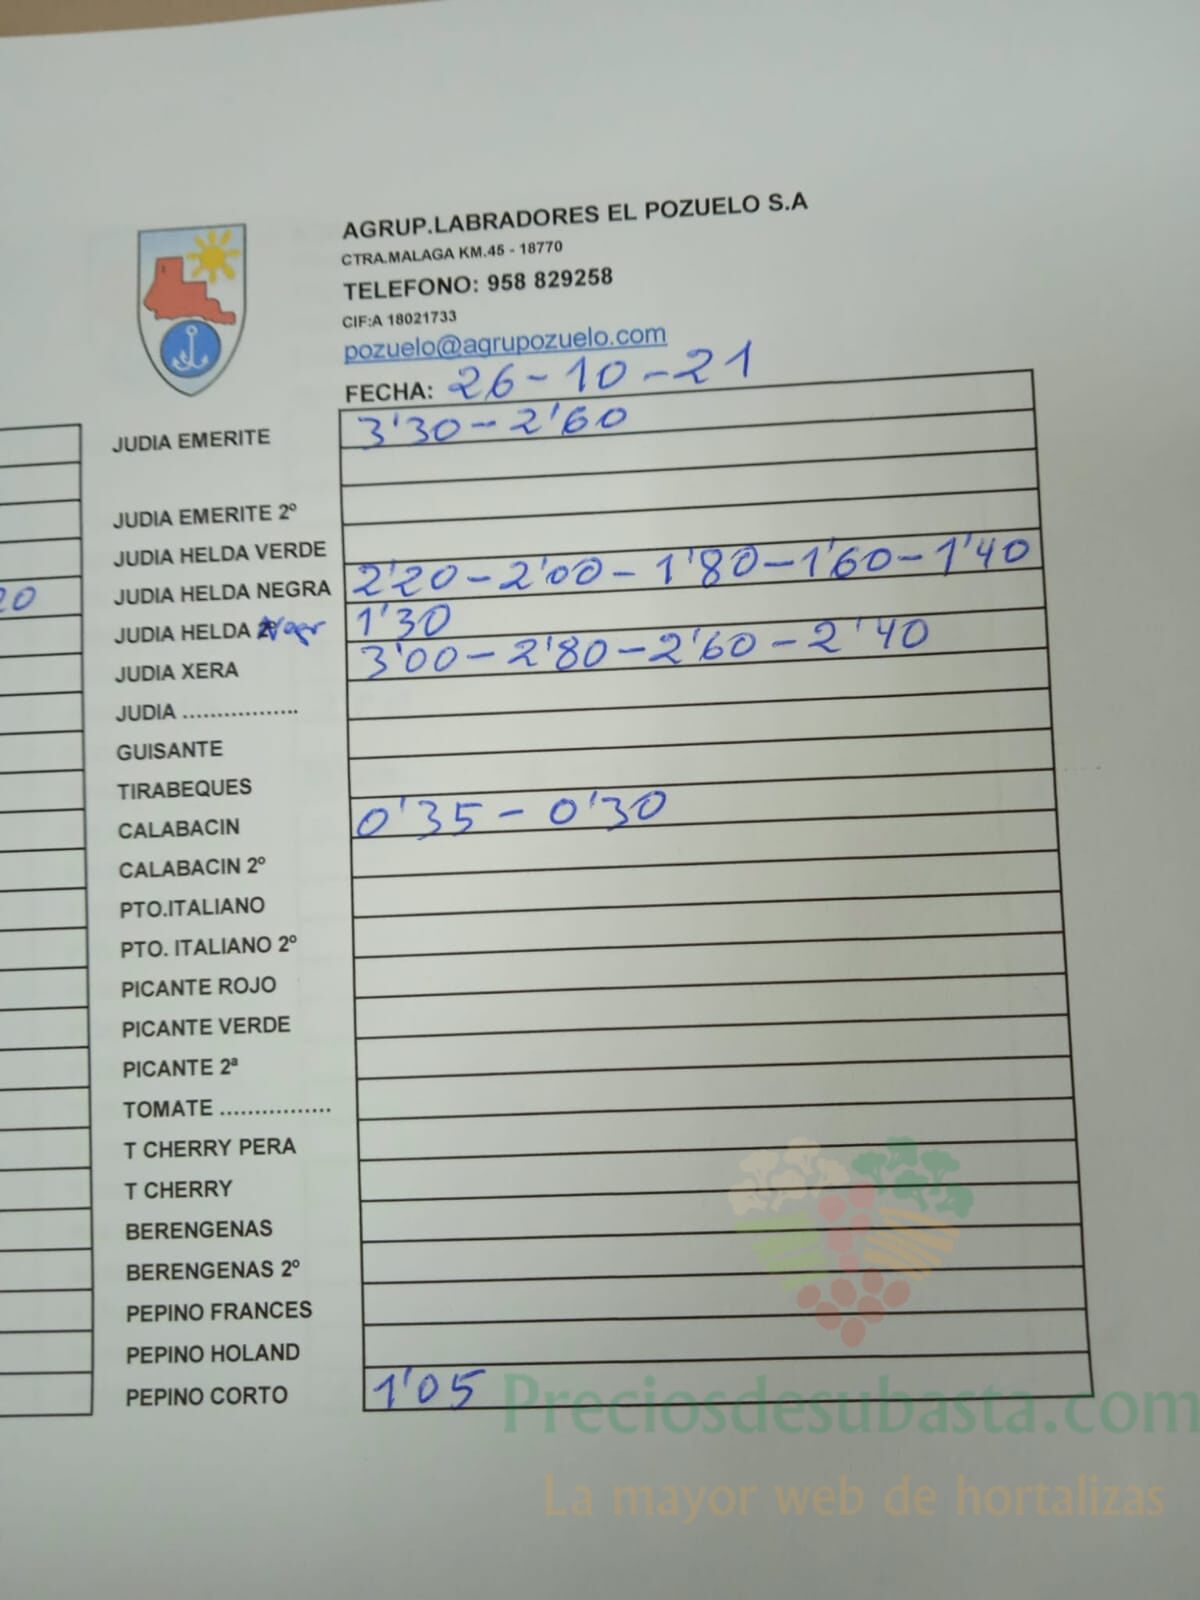 AGRUP.LABRADORES EL POZUELO S.A
CTRA.MALAGA KM.45 - 18770
TELEFONO: 958 829258
CIF:A 18021733
pozuelo@agrupozuelo.com
FECHA: 26-10-21
JUDIA EMERITE 3'30-2'60
JUDIA EMERITE 2º
JUDIA HELDA VERDE
JUDIA HELDA NEGRA 2'20-2'00-1'80-1'60-1'40
20
JUDIA HELDA Negr 1'30
JUDIA XERA 3'00-2'80-2'60-2'40
JUDIA .................
GUISANTE
TIRABEQUES
CALABACIN 0'35-0'30
CALABACIN 2º
PTO.ITALIANO
PTO. ITALIANO 2º
PICANTE ROJO
PICANTE VERDE
PICANTE 2ª
TOMATE ................
T CHERRY PERA
T CHERRY
BERENGENAS
BERENGENAS 2º
PEPINO FRANCES
PEPINO HOLAND
PEPINO CORTO 1'05
Preciosdesubasta.com
La mayor web de hortalizas